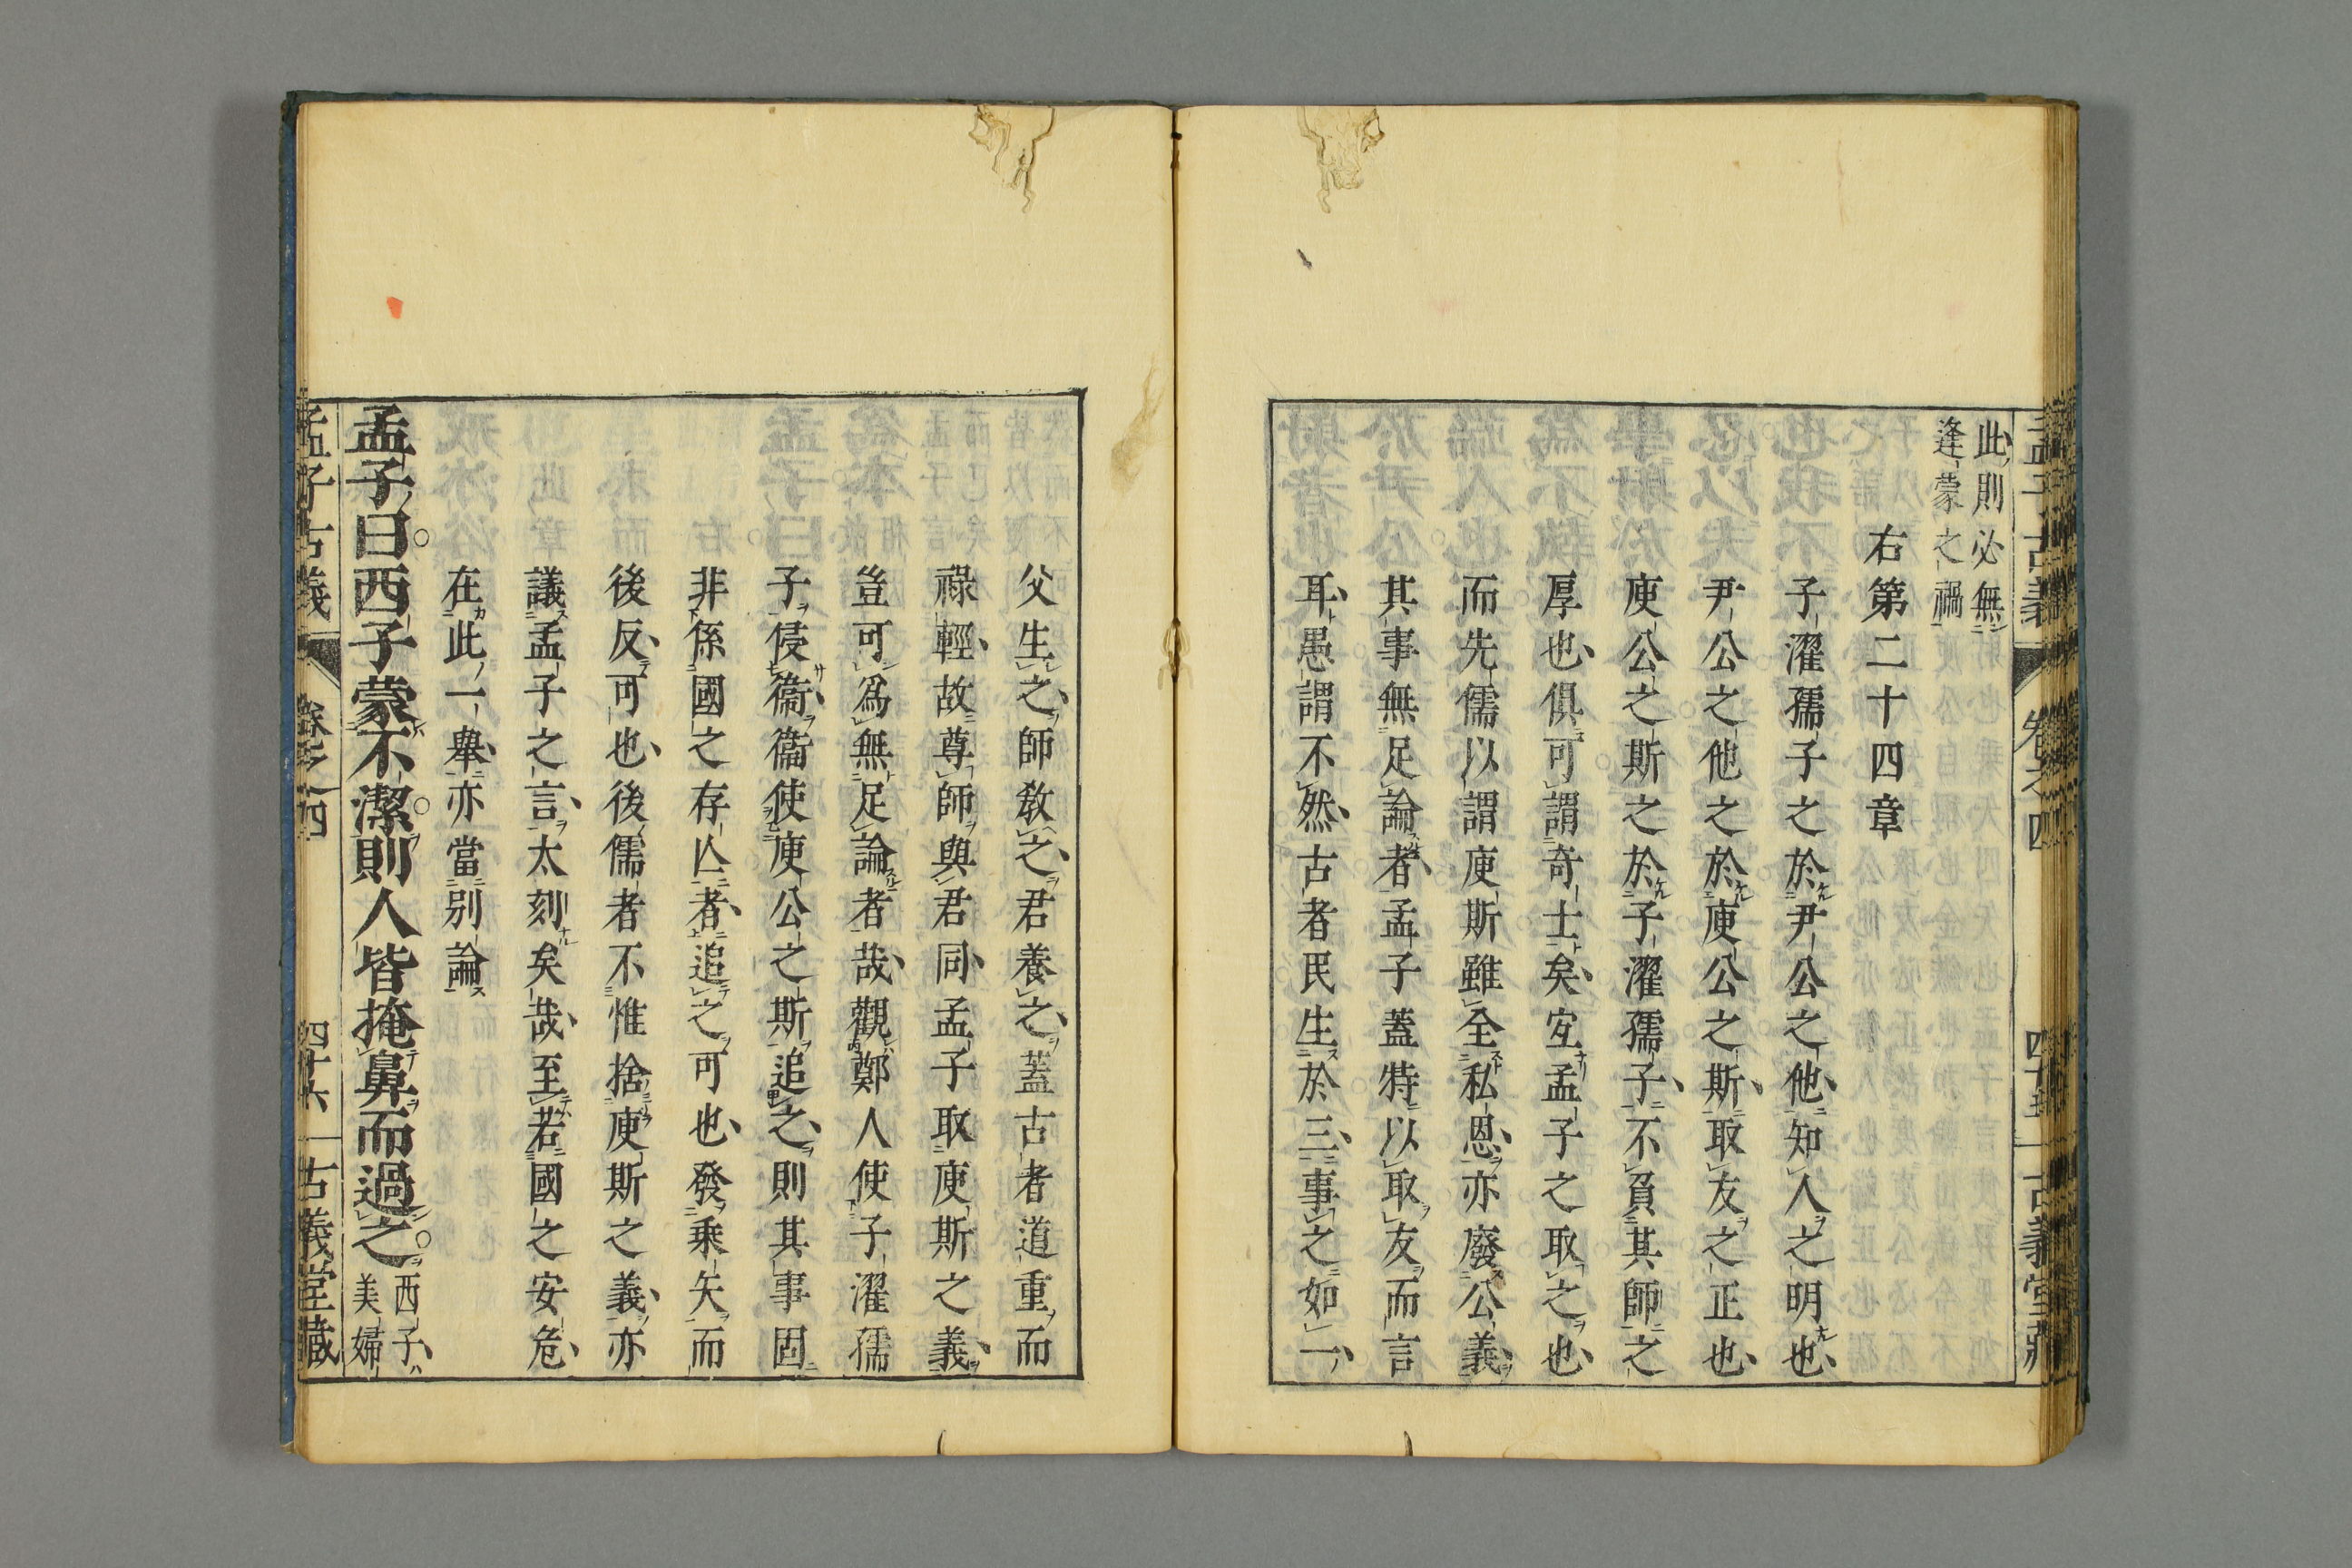 孟子古義 卷之四 四十五 古義堂藏
此則必無
逢蒙之禍
右第二十四章
子濯孺子之於尹公之他知人之明也
尹公之他之於庾公之斯取友之正也
庾公之斯之於子濯孺子不負其師之
厚也俱可謂奇士矣宜孟子之取之也
而先儒以謂庾斯雖全私恩亦廢公義
其事無足論者孟子蓋特以取友而言
耳愚謂不然古者民生於三事之如一
父生之師教之君養之蓋古者道重而
祿輕故尊師與君同孟子取庾斯之義
豈可爲無足論者哉觀鄭人使子濯孺
子侵衞衞使庾公之斯追之則其事固
非係國之存亾者追之可也發乘矢而
後反可也後儒者不惟捨庾斯之義亦
議孟子之言太刻矣哉至若國之安危
在此一舉亦當別論
孟子曰西子蒙不潔則人皆掩鼻而過之
西子
美婦
孟子古義 卷之四 四十六 古義堂藏